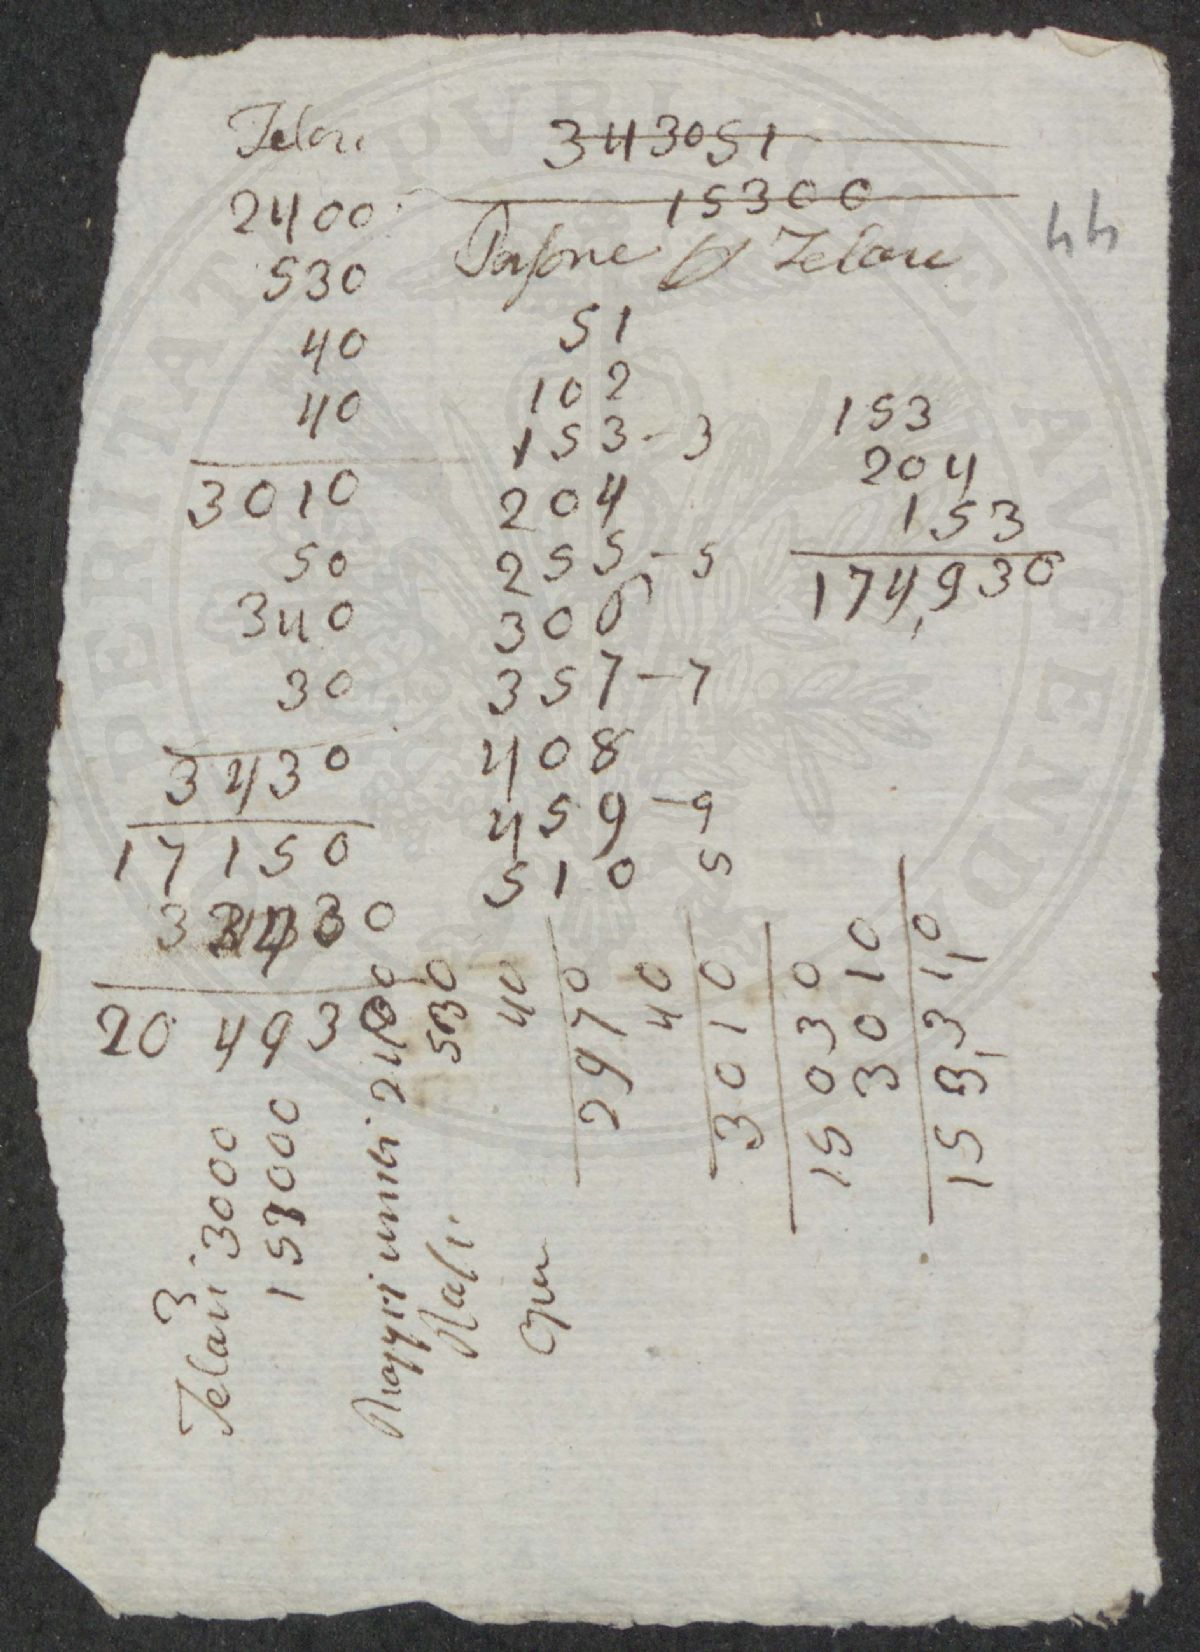 Telari
2400
530
40
40
3010
50
340
30
3430
17150
3 3430
20 493
343051
15300
Telari
44
51
102
153 - 3
204
255 - 5
306
357 - 7
408
459 - 9
510 5
153
204
153
174,930
3
Telari 3000
153000
2400
530
40
2970
40
3010
15030
3010
153310
PERITATE PVBLICA AVGENDO